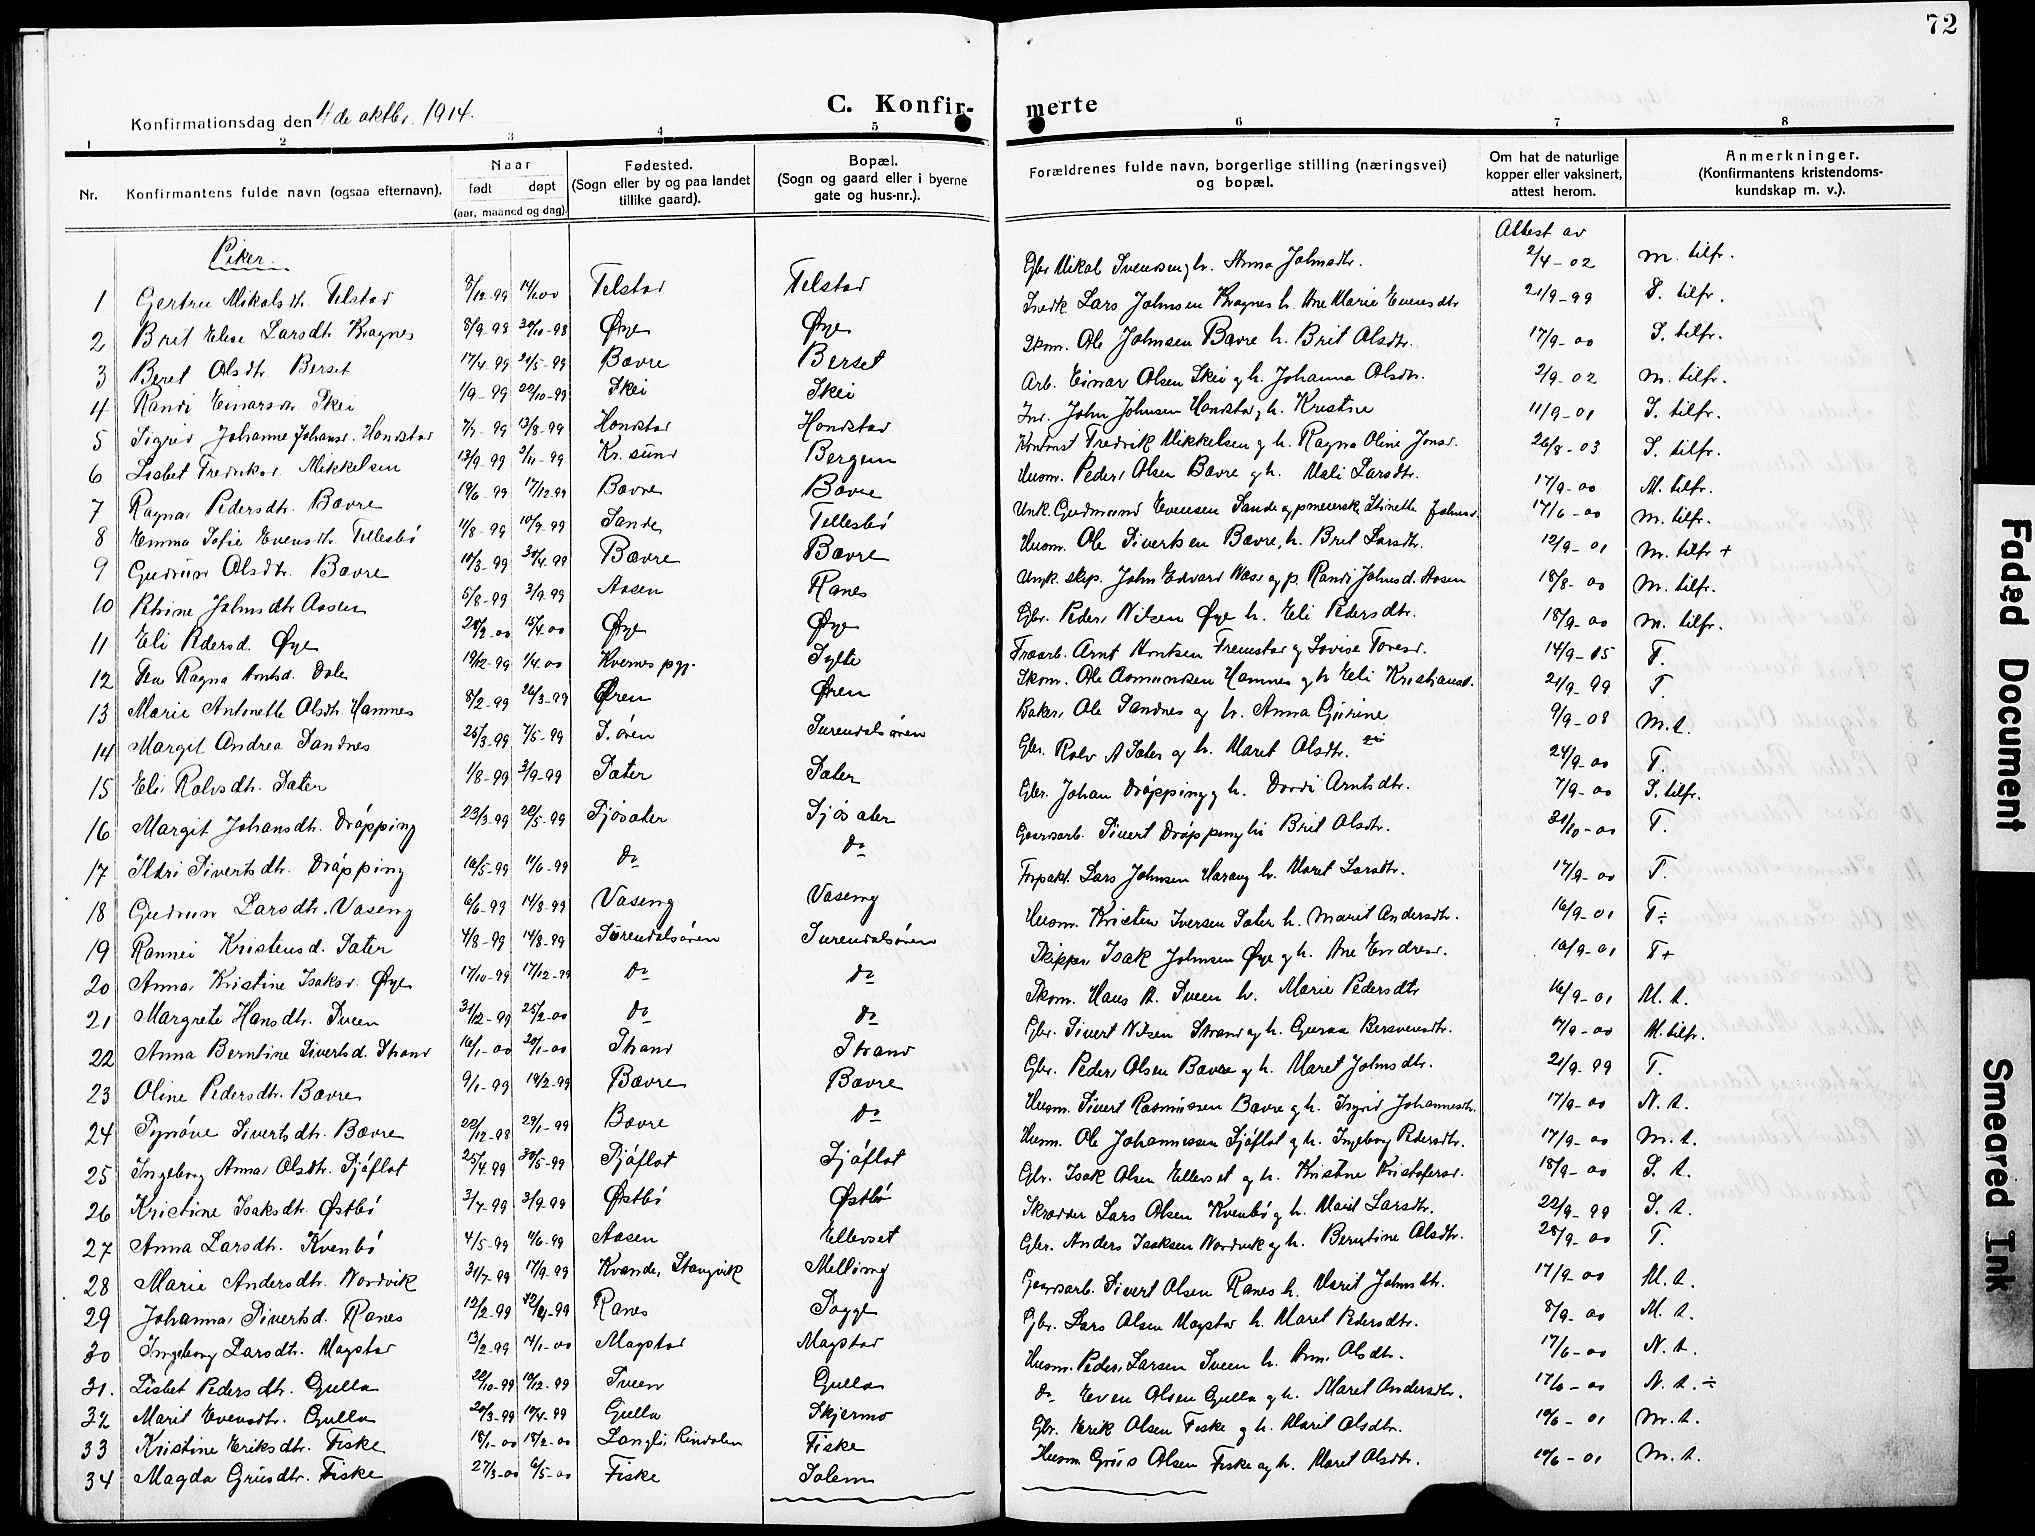 72
C. Konfir-
merte
Konfirmationsdag den 4de oktbr. 1914.
1 2 3 4 5 6 7 8
Nr.
Konfirmantens fulde navn (ogsaa efternavn).
Naar
født døpt
(aar, maaned og dag).
Fødested.
(Sogn eller by og paa landet
tillike gaard).
Bopæl.
(Sogn og gaard eller i byerne
gate og hus-nr.).
Forældrenes fulde navn, borgerlige stilling (næringsvei)
og bopæl.
Om hat de naturlige
kopper eller vaksinert,
attest herom.
Anmerkninger.
(Konfirmantens kristendoms-
kundskap m. v.).
Piker.
Attest av
1 Gertru Mikalsdtr. Telstad 8/12-99 14/1 00 Telstad Telstad Gbr. Mikal Svendsen g h. Anna Johnsdtr. 2/4-02 M. tilfr.
2 Brit Elise Larsdtr. Kragnes 8/9-98 30/10-98 Øye Øye Lars Johnsen Kragnes h. Ane Marie Evensdtr 21/9-99 S. tilfr.
3 Beret Olsdtr. Berset 17/4 99 21/5-99 Bævre Berset Skom. Ole Johnsen Bævre h. Brit Olsdtr. 17/9-00 S. tilfr.
4 Randi Einarsdr Skei 1/9-99 22/10-99 Skei Skei Arb. Einar Olsen Skei g h. Johanna Olsdtr. 2/9-02 M. tilfr.
5 Sigrid Johanne Johnsd. Honstad 7/7-99 13/8-99 Honstad Honstad Inr. John Johnsen Honstad g h. Kristine 11/9-01 S. tilfr.
6 Lisbet Fredriksd. Mikkelsen 13/9-99 5/11-99 Kr.sund Bergum Fredrik Mikkelsen g h. Ragna Oline Jonsd. 26/8-03 S. tilfr.
7 Ragna Pedersdtr. Bævre 19/6-99 17/12 99 Bævre Bævre Husm. Peder Olsen Bævre g h. Mali Larsdtr. 17/9-00 M. tilfr.
8 Emma Sofie Evensdtr. Tellesbø 11/8-99 10/9-99 Sande Tellesbø Unk. Gudmund Evensen Sande og pmeiersk Stinette Johnsd. 17/6-00 M. tilfr.
9 Gudrun Olsdtr. Bævre 10/3-99 30/4 99 Bævre Bævre Husm. Ole Sivertsen Bævre, h. Brit Larsdtr. 12/9-01 M. tilfr +
10 Johnsdtr Aasen 5/8-99 3/9 99 Aasen Ranes Ungk. skip. John Edvard Næss og p. Randi Johnsd. Aasen 18/8-00 M. tilfr.
11 Eli Pedersd. Øye 20/2-00 15/4 00 Øye Øye Gbr. Peder Nilsen Øye h. Eli Pedersdtr. 18/9-00 M. tilfr.
12 Ragna Arntsd. Dale 19/12-99 1/4 00 Kvernes pgj. Sylte Arnt Arntsen Fremstad g Lovise Toresd. 14/9-05 T.
13 Marie Antonette Olsdtr. Hamnes 8/2-99 26/3-99 Øren Øren Skom. Ole Asmundsen Hamnes g h Eli Kristiansd. 21/9-99 T.
14 Margit Andrea Sandnes 25/3-99 7/5-99 S.øren Surendalsøren Baker Ole Sandnes og h. Anna Gurine 9/9-08 M. t.
15 Eli Rolvsdtr. Sæter 1/8-99 3/9-99 Sæter Sæter Gbr. Rolv A Sæter g h. Maret Olsdtr. 24/9-00 T.
16 Margit Johansdtr. Drøpping 23/3-99 20/5-99 Sjøsæter Sjøsæter Gbr. Johan Drøpping g h. Dordi Arntsdtr. 7/9-00 S. tilfr.
17 Ildri Sivertsdtr. Drøpping 16/5-99 11/6-99 do do Gaardsarb. Sivert Drøpping h. Brit Olsdtr. 31/10-00 T.
18 Gudrun Larsdtr. Vaseng 6/6-99 14/8-99 Vaseng Vaseng Forpakt. Lars Johnsen Harang h. Maret Larsdtr. 17/9-00 T.
19 Rannei Kristensd. Sæter 4/8-99 14/8-99 Surendalsøren Surendalsøren Husm. Kristen Iversen Sæter h. Marit Andersdtr. 16/9-01 T÷
20 Anna Kristine Isaksd. Øye 17/10-99 17/12-99 do do Skipper Isak Johnsen Øye g h. Ane Endresd. 10/9-01 T+
21 Margrete Hansdtr. Sveen 31/12-99 25/2-00 do do Skom. Hans A. Sveen h. Marie Pedersdtr 16/9-01 M. t.
22 Anna Berntine Sivertsd. Strand 16/1-00 20/1-00 Strand Strand Gbr. Sivert Nilsen Strand og h. Guraa Bersvensdtr. 4/9-00 M. tilfr.
23 Oline Pedersdtr. Bævre 9/1-99 19/2-99 Bævre Bævre Gbr. Peder Olsen Bævre g h. Maret Johnsdtr. 21/9-99 T.
24 Synøve Sivertsdtr. Bævre 22/12-98 29/1-99 Bævre do Husm. Sivert Rasmussen Bævre g h. Ingrid Johannesdtr. 17/9-00 N. t.
25 Ingeborg Anna Olsdtr. Sjøflot 25/4 99 30/5-99 Sjøflot Sjøflot Husm. Ole Johannessen Sjøflot g h. Ingeborg Pedersdtr. 17/9-00 M. t.
26 Kristine Isaksdtr. Østbø 3/7-99 3/9-99 Østbø Østbø Gbr. Isak Olsen Ellevset g h. Kristine Kristofersd. 18/9-00 S. t.
27 Anna Larsdtr. Kvenbø 4/5-99 11/6-99 Aasen Ellevset Skrædder Lars Olsen Kvenbø g h. Marit Larsdtr. 22/9-99 S. t.
28 Marie Andersdtr. Nordvik 31/7-99 17/9-99 Kvande, Stangvik Melling Gbr. Anders Isaksen Nordvik og h. Berntine Olsdtr. 28/9-00 T.
29 Johanna Sivertsd. Ranes 12/2-99 Ranes Sogge Gaardsarb. Sivert Olsen Ranes h. Marit Johnsdtr. 17/9-00 M. t.
30 Ingeborg Larsdtr. Magstad 13/2-99 14/1-00 Magstad Magstad Gbr. Lars Olsen Magstad h. Maret Pedersdtr. 8/9-00 M. t.
31. Lisbet Pedersdtr. Gulla 22/10-99 10/12-99 Sveen Gulla Husm. Peder Larsen Sveen h. Olsdtr. 17/6-00 N. t.
32 Marit Evensdtr. Gulla 20/3-99 10/4-99 Gulla Skjermo do Even Olsen Gulla g h. Maret Andersdtr. 17/6-00 N. t. ÷
33 Kristine Eriksdtr. Fiske 18/1-00 18/2-00 Langli Rindalen Fiske Gbr. Erik Olsen Fiske g h. Marit Olsdtr. 10/6-01 M. t.
34 Magda Griisdtr. Fiske 27/3-00 6/5-00 Fiske Solem Husm Griis Olsen Fiske og h. Maret Olsdtr. 10/6-01 M. t.
Faded Document
Smeared Ink